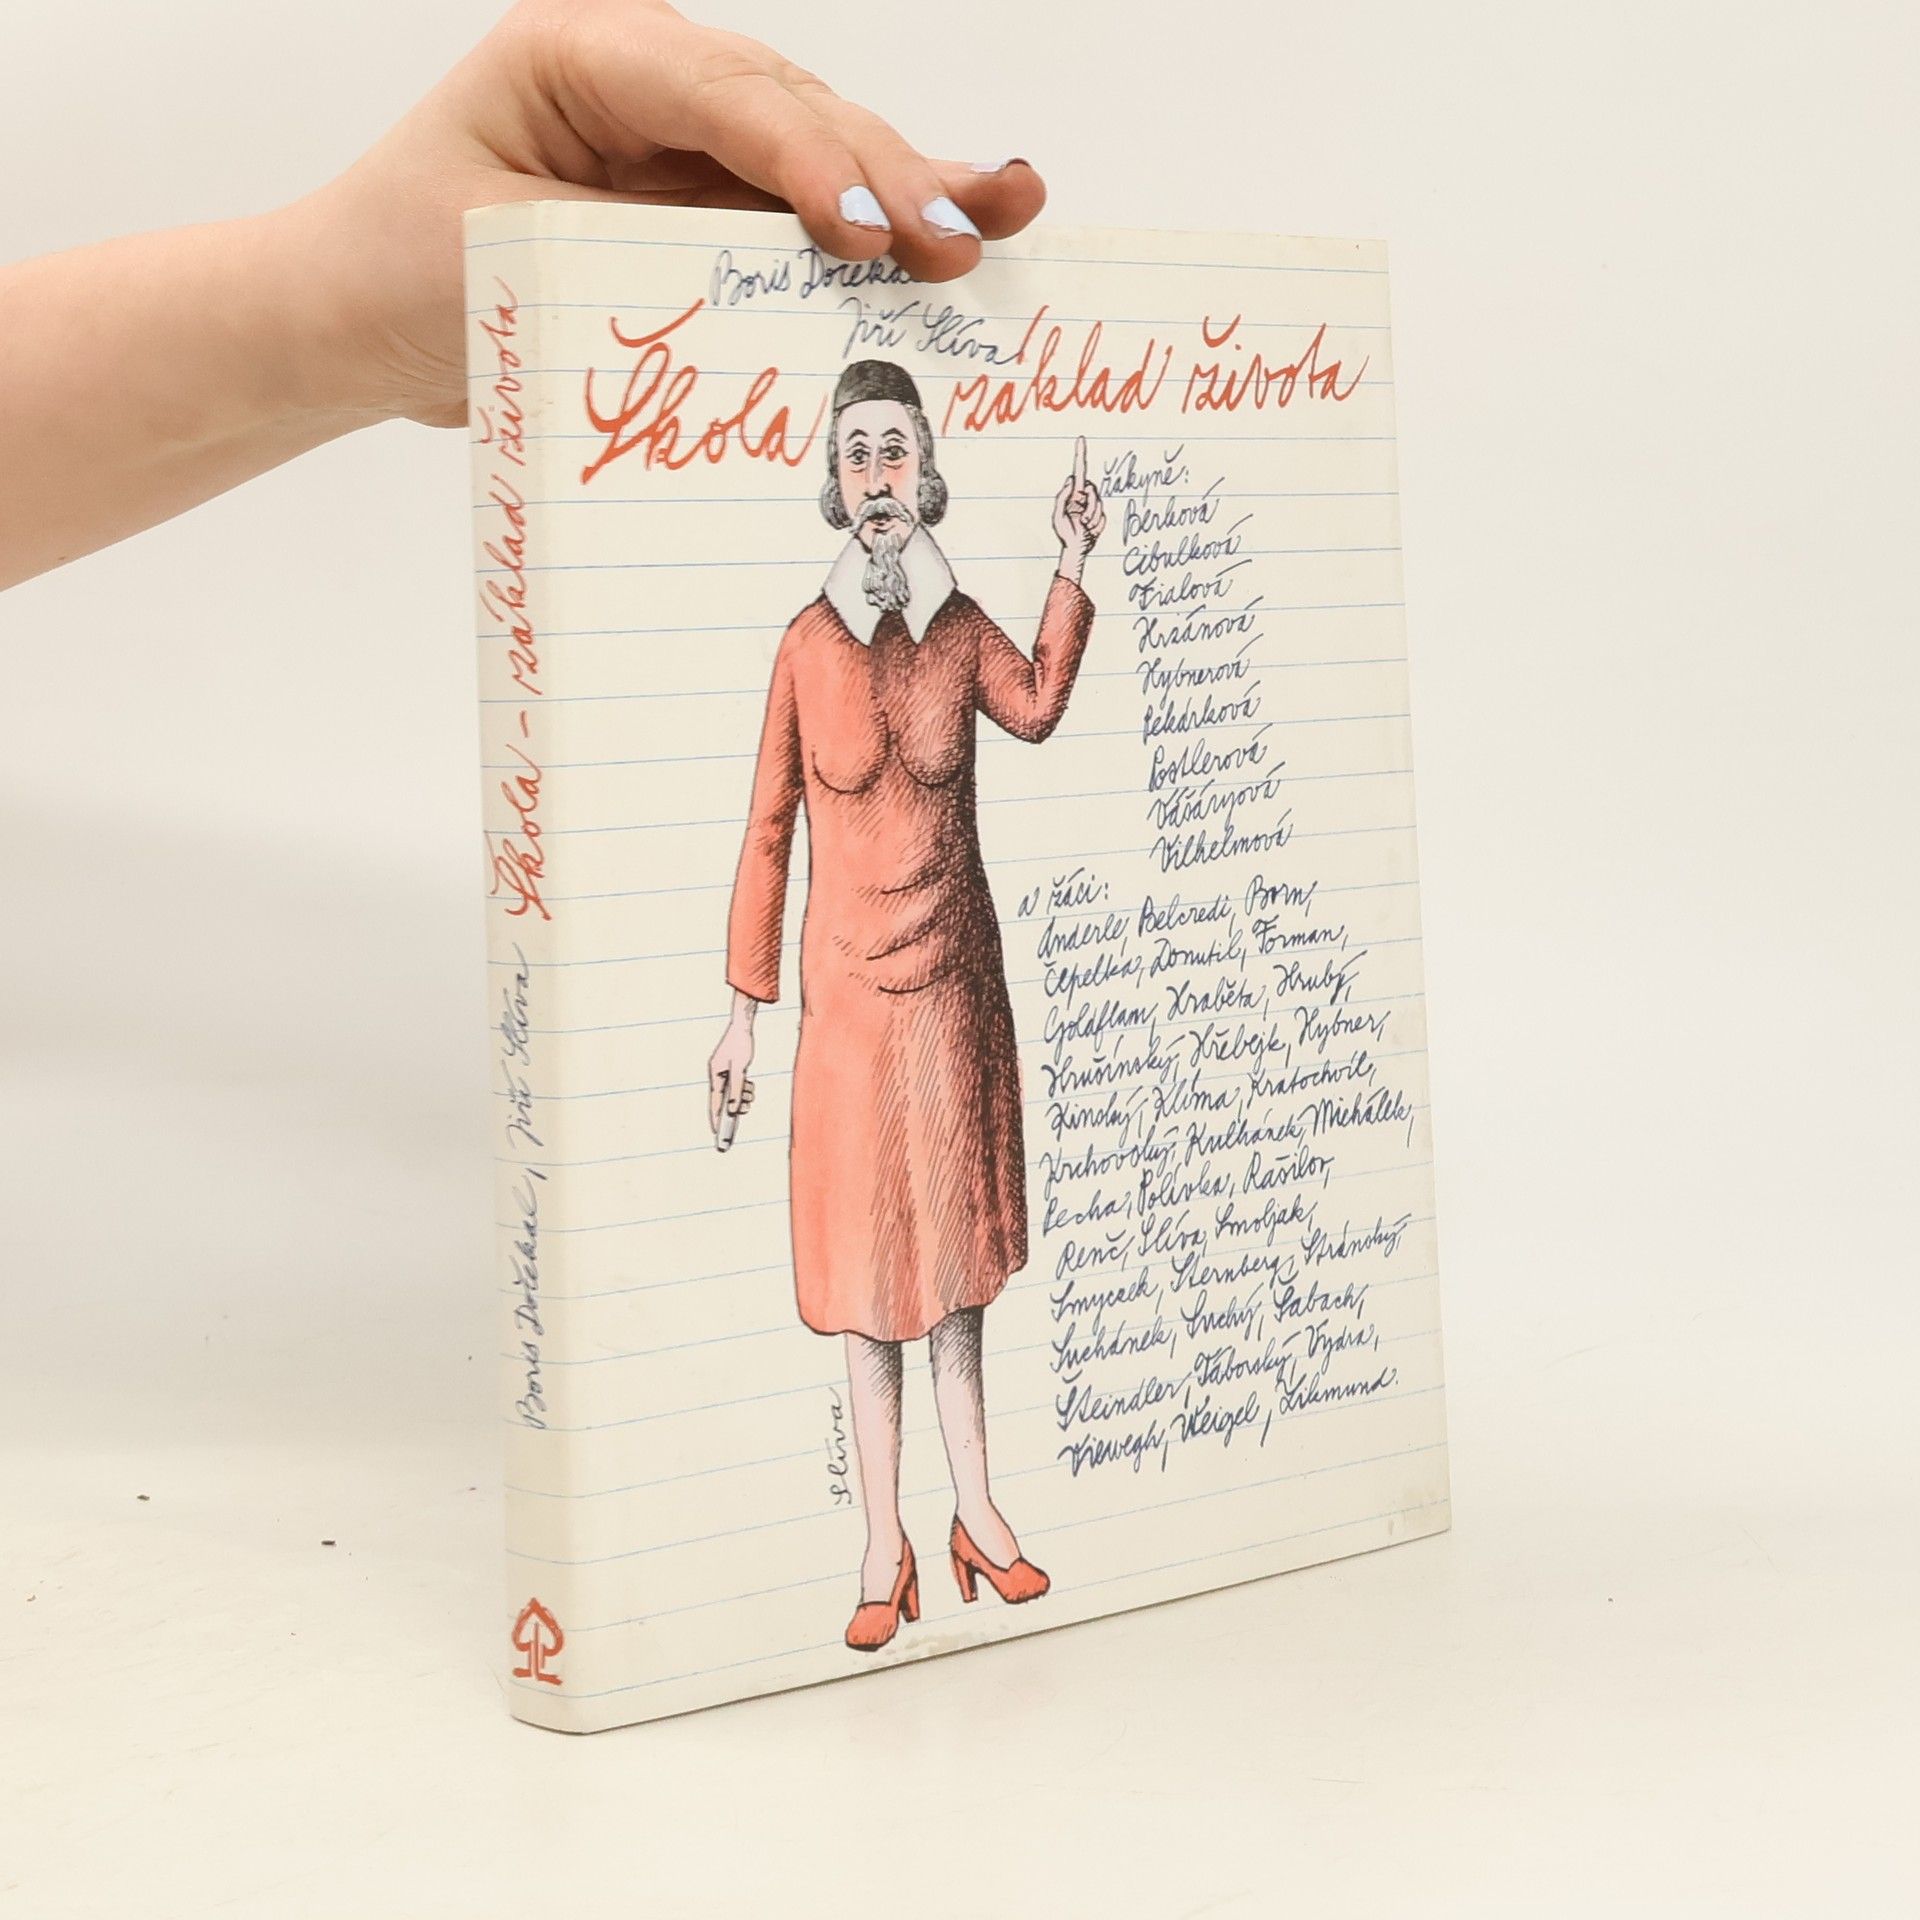 Škola – základ života
Boris Dočekal, Jiří Slíva
Boris
Jiří Slíva
Škola základ života
žákyně:
Berková
Cibulková
Fialová
Hrzánová
Hybnerová
Pekárková
Postlerová
Vášáryová
Vilhelmová
a žáci:
Anderle, Belcredi, Born,
Čepelka, Donutil, Forman,
Goldflam, Hraběta, Hrubý,
Hrušínský, Hřebejk, Hybner,
Kinský, Klíma, Kratochvíl,
Krchovský, Kulhánek, Michálek,
Pecha, Polívka, Rašilov,
Renč, Slíva, Smoljak,
Smyczek, Sternberg, Stránský,
Suchánek, Suchý, Šabach,
Šteindler, Táborský, Vydra,
Viewegh, Weigel, Zikmund.
Slíva